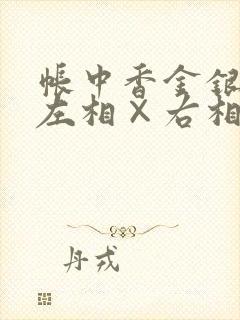 帳中香金銀
左相×右相
丹戎